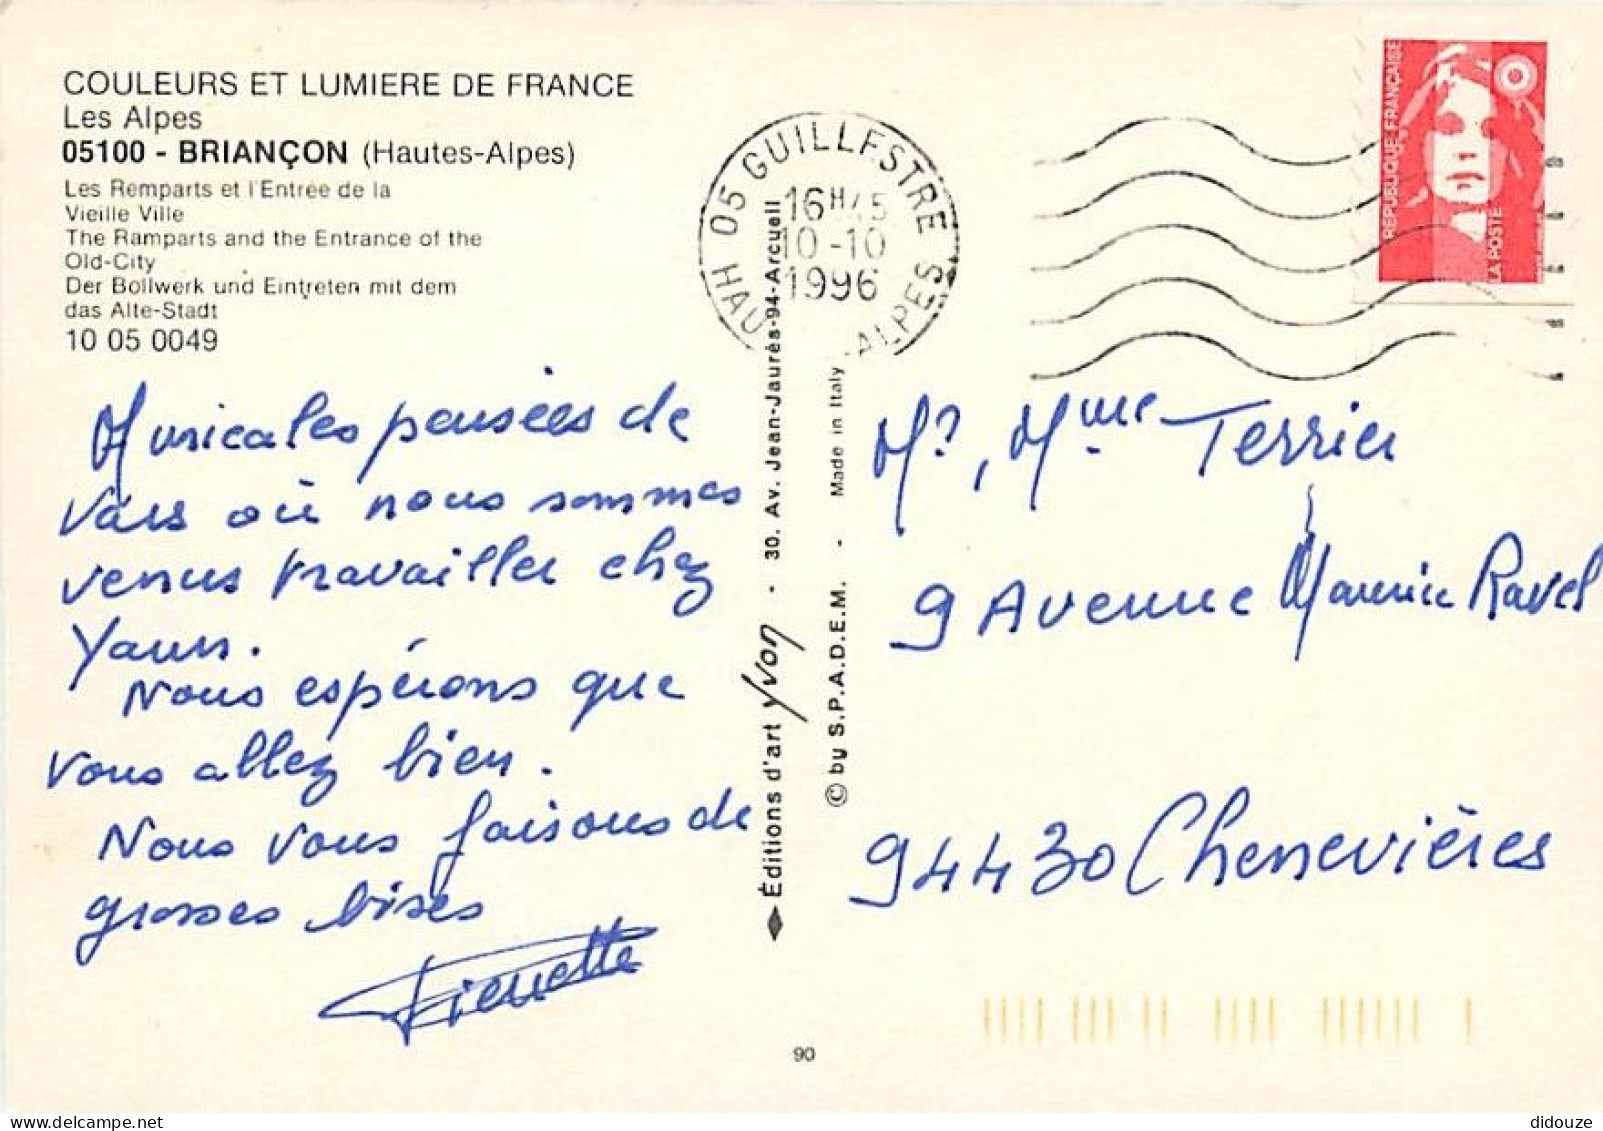 COULEURS ET LUMIERE DE FRANCE
Les Alpes
05100 - BRIANÇON (Hautes-Alpes)
Les Remparts et l'Entrée de la
Vieille Ville
The Ramparts and the Entrance of the
Old-City
Der Bollwerk und Eintreten mit dem
das Alte-Stadt
10 05 0049
Musicales pensées de
Vars où nous sommes
venus travailler chez
Yann.
Nous espérons que
vous allez bien.
Nous vous faisons de
grosses bises
Pierrette
Éditions d'art Yvon - 30. Av. Jean-Jaurès-94-Arcueil
© by S.P.A.D.E.M. - Made in Italy
90
05 GUILLESTRE
16H45
10-10
1996
HAU -ALPES
RÉPUBLIQUE FRANÇAISE
LA POSTE
Mr, Mme Terrier
9 Avenue Maurice Ravel
94430 Chennevières
didouze
delcampe.net